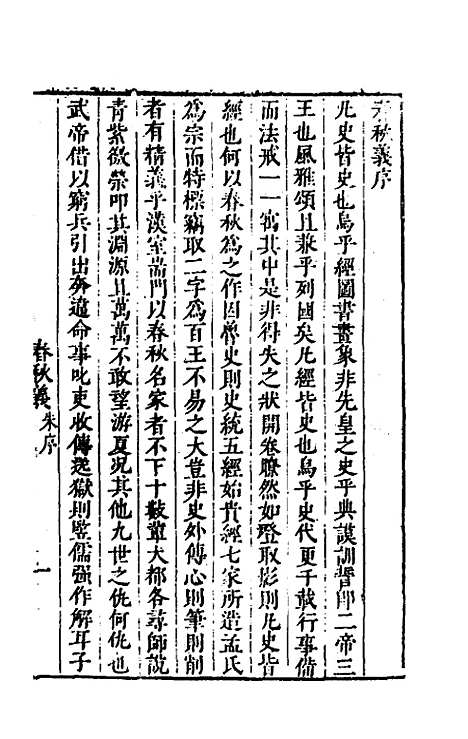 春秋義序
凡史皆史也烏乎經圖書畫象非先皇之史乎典謨訓誓卽二帝三
王也風雅頌且兼乎列國矣凡經皆史也烏乎史代更千載行事備
而法戒一一寓其中是非得失之狀開卷瞭然如燈取影則凡史皆
經也何以春秋爲之作因魯史則史統五經始貴經七家所造孟氏
爲宗而特標竊取二字爲百王不易之大豈非史外傳心則筆則削
者有精義乎漢室耑門以春秋名家者不下十數輩大都各尋師說
青紫徼榮叩其淵源且萬萬不敢望游夏況其他九世之仇何仇也
武帝借以窮兵引出疆遣命事叱吏收傳逮獄則豎儒強作解耳子
春秋義 朱序 一